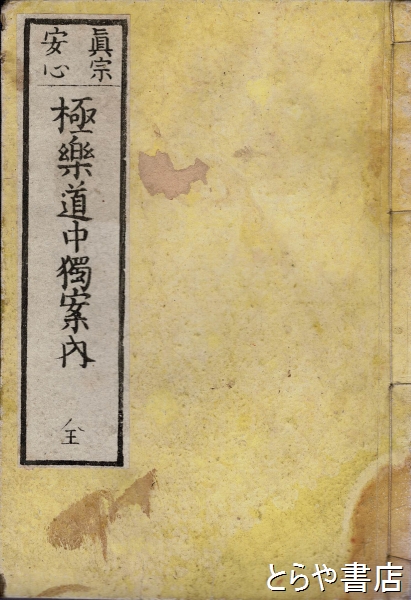 眞宗
安心
極樂道中獨案內
全
とらや書店